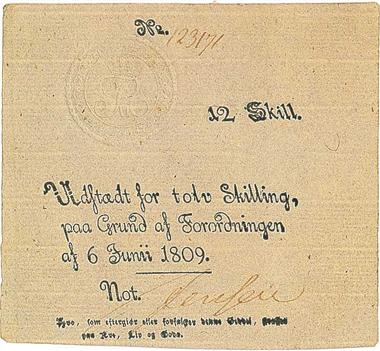 No. 123171
12 Skill.
Udstædt for tolv Skilling,
paa Grund af Forordningen
af 6 Junii 1809.
Not.
Hvo, som eftergiør eller forfalsker denne Seddel, straffes
paa Ære, Liv og Gods.